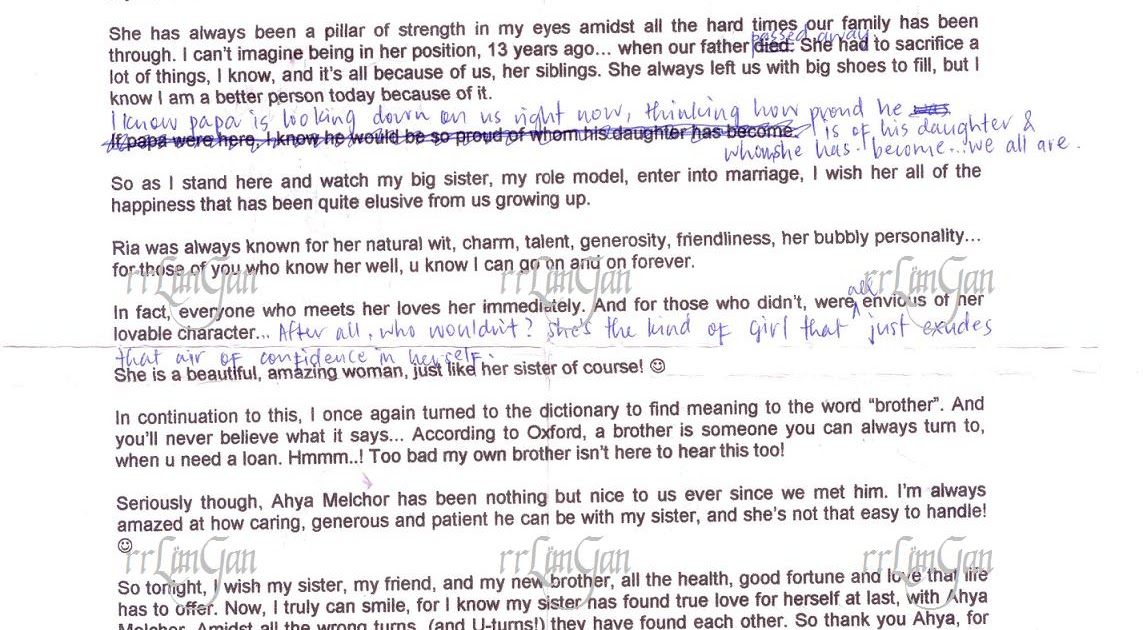 She has always been a pillar of strength in my eyes amidst all the hard times our family has been
passed away
through. I can't imagine being in her position, 13 years ago... when our father died. She had to sacrifice a
lot of things, I know, and it's all because of us, her siblings. She always left us with big shoes to fill, but I
know I am a better person today because of it.
I know papa is looking down on us right now, thinking how proud he was
If papa were here, I know he would be so proud of whom his daughter has become. is of his daughter &
whom she has become...we all are.
So as I stand here and watch my big sister, my role model, enter into marriage, I wish her all of the
happiness that has been quite elusive from us growing up.
Ria was always known for her natural wit, charm, talent, generosity, friendliness, her bubbly personality...
for those of you who know her well, u know I can go on and on forever.
rrLimGan rrLimGan rrLimGan
all
In fact, everyone who meets her loves her immediately. And for those who didn't, were envious of her
lovable character... After all, who wouldn't? She's the kind of girl that just exudes
that air of confidence in herself.
She is a beautiful, amazing woman, just like her sister of course! ☺
In continuation to this, I once again turned to the dictionary to find meaning to the word “brother”. And
you'll never believe what it says... According to Oxford, a brother is someone you can always turn to,
when u need a loan. Hmmm..! Too bad my own brother isn't here to hear this too!
Seriously though, Ahya Melchor has been nothing but nice to us ever since we met him. I'm always
amazed at how caring, generous and patient he can be with my sister, and she's not that easy to handle!
☺
rrLimGan rrLimGan rrLimGan
So tonight, I wish my sister, my friend, and my new brother, all the health, good fortune and love that life
has to offer. Now, I truly can smile, for I know my sister has found true love for herself at last, with Ahya
Melchor. Amidst all the wrong turns, (and U-turns!) they have found each other. So thank you Ahya, for